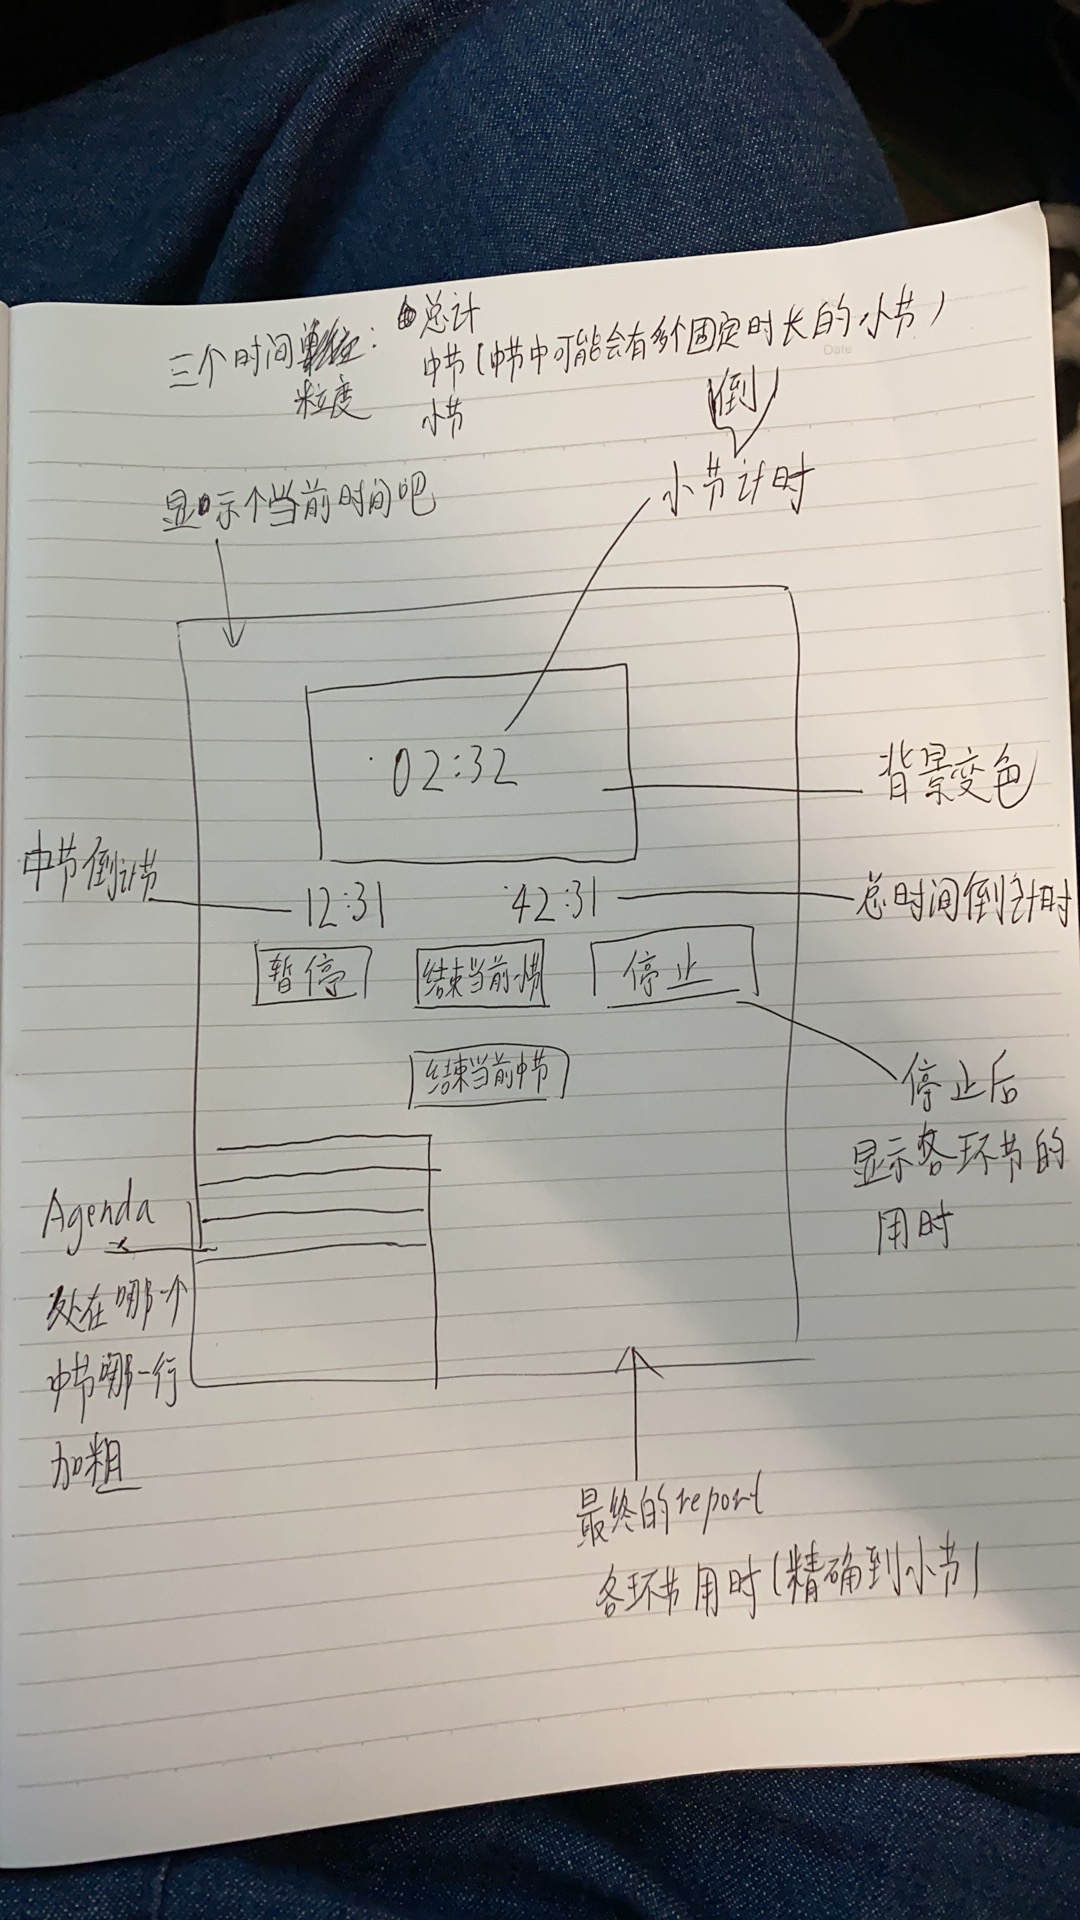 三个时间
粒度
：总计
中节(中节中可能会有多个固定时长的小节)
小节
Date
倒
小节计时
显示个当前时间吧
02:32
背景变色
中节倒计节
12:31
42:31
总时间倒计时
暂停
结束当前小节
停止
结束当前中节
停止后
显示各环节的
用时
Agenda
处在哪一个
中节哪一行
加粗
最终的report
各环节用时(精确到小节)